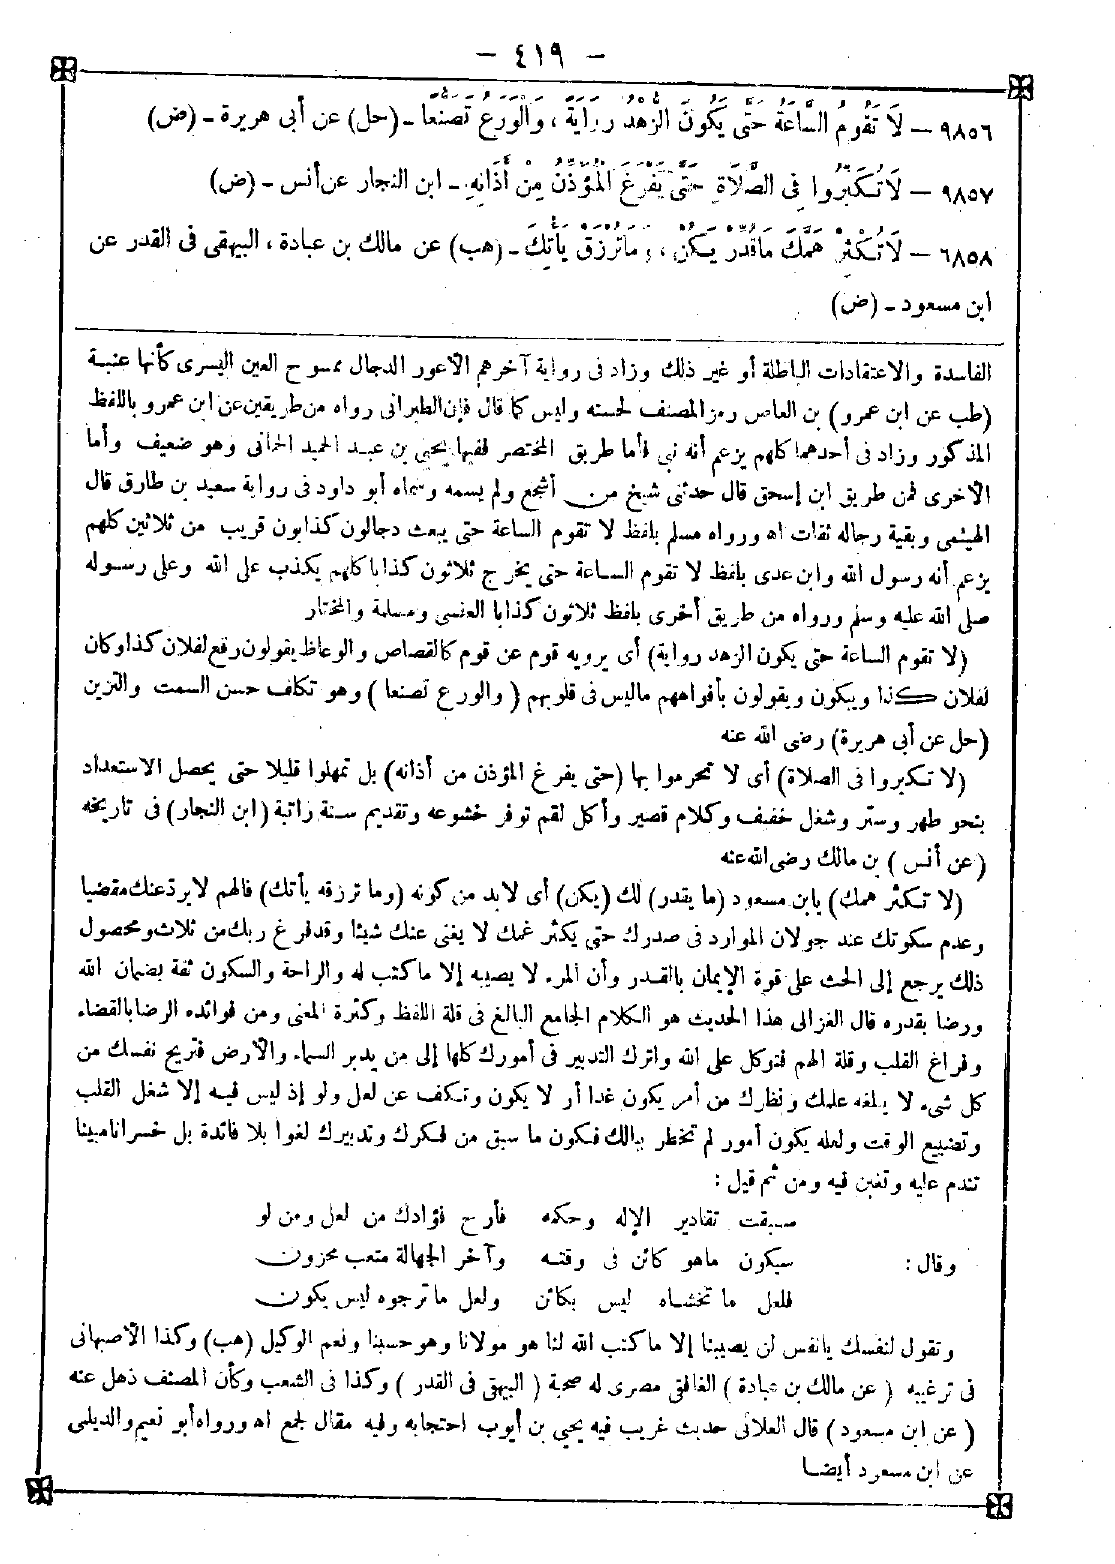 — ٤١٩ —
٩٨٥٦ — لَا تَقُومُ السَّاعَةُ حَتَّى يَكُونَ الزُّهْدُ رِوَايَةً ، وَالْوَرَعُ تَصَنُّعًا ـ (حل) عن أبى هريرة ـ (ض)
٩٨٥٧ — لَا تُكَبِّرُوا فِى الصَّلَاةِ حَتَّى يَفْرَغَ الْمُؤَذِّنُ مِنْ أَذَانِهِ ـ ابن النجار عن أنس ـ (ض)
٦٨٥٨ — لَا تُكْثِرْ هَمَّكَ مَا قُدِّرَ يَكُنْ ، وَمَا تُرْزَقْ يَأْتِكَ ـ (هب) عن مالك بن عبادة ، البيهقى فى القدر عن
ابن مسعود ـ (ض)
الفاسدة والاعتقادات الباطلة أو غير ذلك وزاد فى رواية آخرهم الأعور الدجال ممسوح العين اليسرى كأنها عنبة
(طب عن ابن عمرو) بن العاص رمز المصنف لحسنه وليس كما قال فإن الطبرانى رواه من طريقين عن ابن عمرو باللفظ
المذكور وزاد فى أحدهما كلهم يزعم أنه نبي فأما طريق المختصر ففيها يحيى بن عبد الحميد الحمانى وهو ضعيف وأما
الأخرى فمن طريق ابن إسحق قال حدثنى شيخ من أشجع ولم يسمه وسماه أبو داود فى رواية سعيد بن طارق قال
الهيثمى وبقية رجاله ثقات اه ورواه مسلم بلفظ لا تقوم الساعة حتى يبعث دجالون كذابون قريب من ثلاثين كلهم
يزعم أنه رسول الله وابن عدى بلفظ لا تقوم الساعة حتى يخرج ثلاثون كذابا كلهم يكذب على الله وعلى رسوله
صلى الله عليه وسلم ورواه من طريق أخرى بلفظ ثلاثون كذابا العنسى ومسلمة والمختار
(لا تقوم الساعة حتى يكون الزهد رواية) أى يرويه قوم عن قوم كالقصاص والوعاظ يقولون رقع لفلان كذا وكان
لفلان كذا ويبكون ويقولون بأفواههم ماليس فى قلوبهم ( والورع تصنعا ) وهو تكلف حسن السمت والتزين
(حل عن أبى هريرة) رضى الله عنه
(لا تكبروا فى الصلاة) أى لا تحرموا بها (حتى يفرغ المؤذن من أذانه) بل تمهلوا قليلا حتى يحصل الاستعداد
بنحو طهر وستر وشغل خفيف وكلام قصير وأكل لقم توفر خشوعه وتقديم سنة راتبة (ابن النجار) فى تاريخه
(عن أنس ) بن مالك رضى الله عنه
(لا تكثر همك) يابن مسعود (ما يقدر) لك (يكن) أى لابد من كونه (وما ترزقه يأتك) فالهم لا يرد عنك مقضيا
وعدم سكوتك عند جولان الموارد فى صدرك حتى يكثر غمك لا يغنى عنك شيئا وقد فرغ ربك من ثلاث ومحصول
ذلك يرجع إلى الحث على قوة الإيمان بالقدر وأن المرء لا يصيبه إلا ما كتب له والراحة والسكون ثقة بضمان الله
ورضا بقدره قال الغزالى هذا الحديث هو الكلام الجامع البالغ فى قلة اللفظ وكثرة المعنى ومن فوائده الرضا بالقضاء
وفراغ القلب وقلة الهم فتوكل على الله واترك التدبير فى أمورك كلها إلى من يدبر السماء والأرض فتريح نفسك من
كل شىء لا يبلغه علمك ونظرك من أمر يكون غدا أو لا يكون وتكف عن لعل ولو إذ ليس فيه إلا شغل القلب
وتضييع الوقت ولعله يكون أمور لم تخطر ببالك فيكون ما سبق من فكرك وتدبيرك لغوا بلا فائدة بل خسرانا مبينا
تندم عليه وتغبن فيه ومن ثم قيل :
سبقت تقادير الإله وحكمه فأرح فؤادك من لعل ومن لو
وقال : سيكون ماهو كائن فى وقته وأخر الجهالة متعب محزون
فلعل ما تخشاه ليس بكائن ولعل ما ترجوه ليس يكون
وتقول لنفسك يانفس لن يصيبنا إلا ما كتب الله لنا هو مولانا وهو حسبنا ونعم الوكيل (هب) وكذا الأصبهانى
فى ترغيبه ( عن مالك بن عبادة ) الغافقى مصرى له صحبة ( البيهقى فى القدر ) وكذا فى الشعب وكأن المصنف ذهل عنه
( عن ابن مسعود) قال العلائى حديث غريب فيه يحيي بن أيوب احتجابه وفيه مقال لجمع اه ورواه أبو نعيم والديلى
عن ابن مسعود أيضا